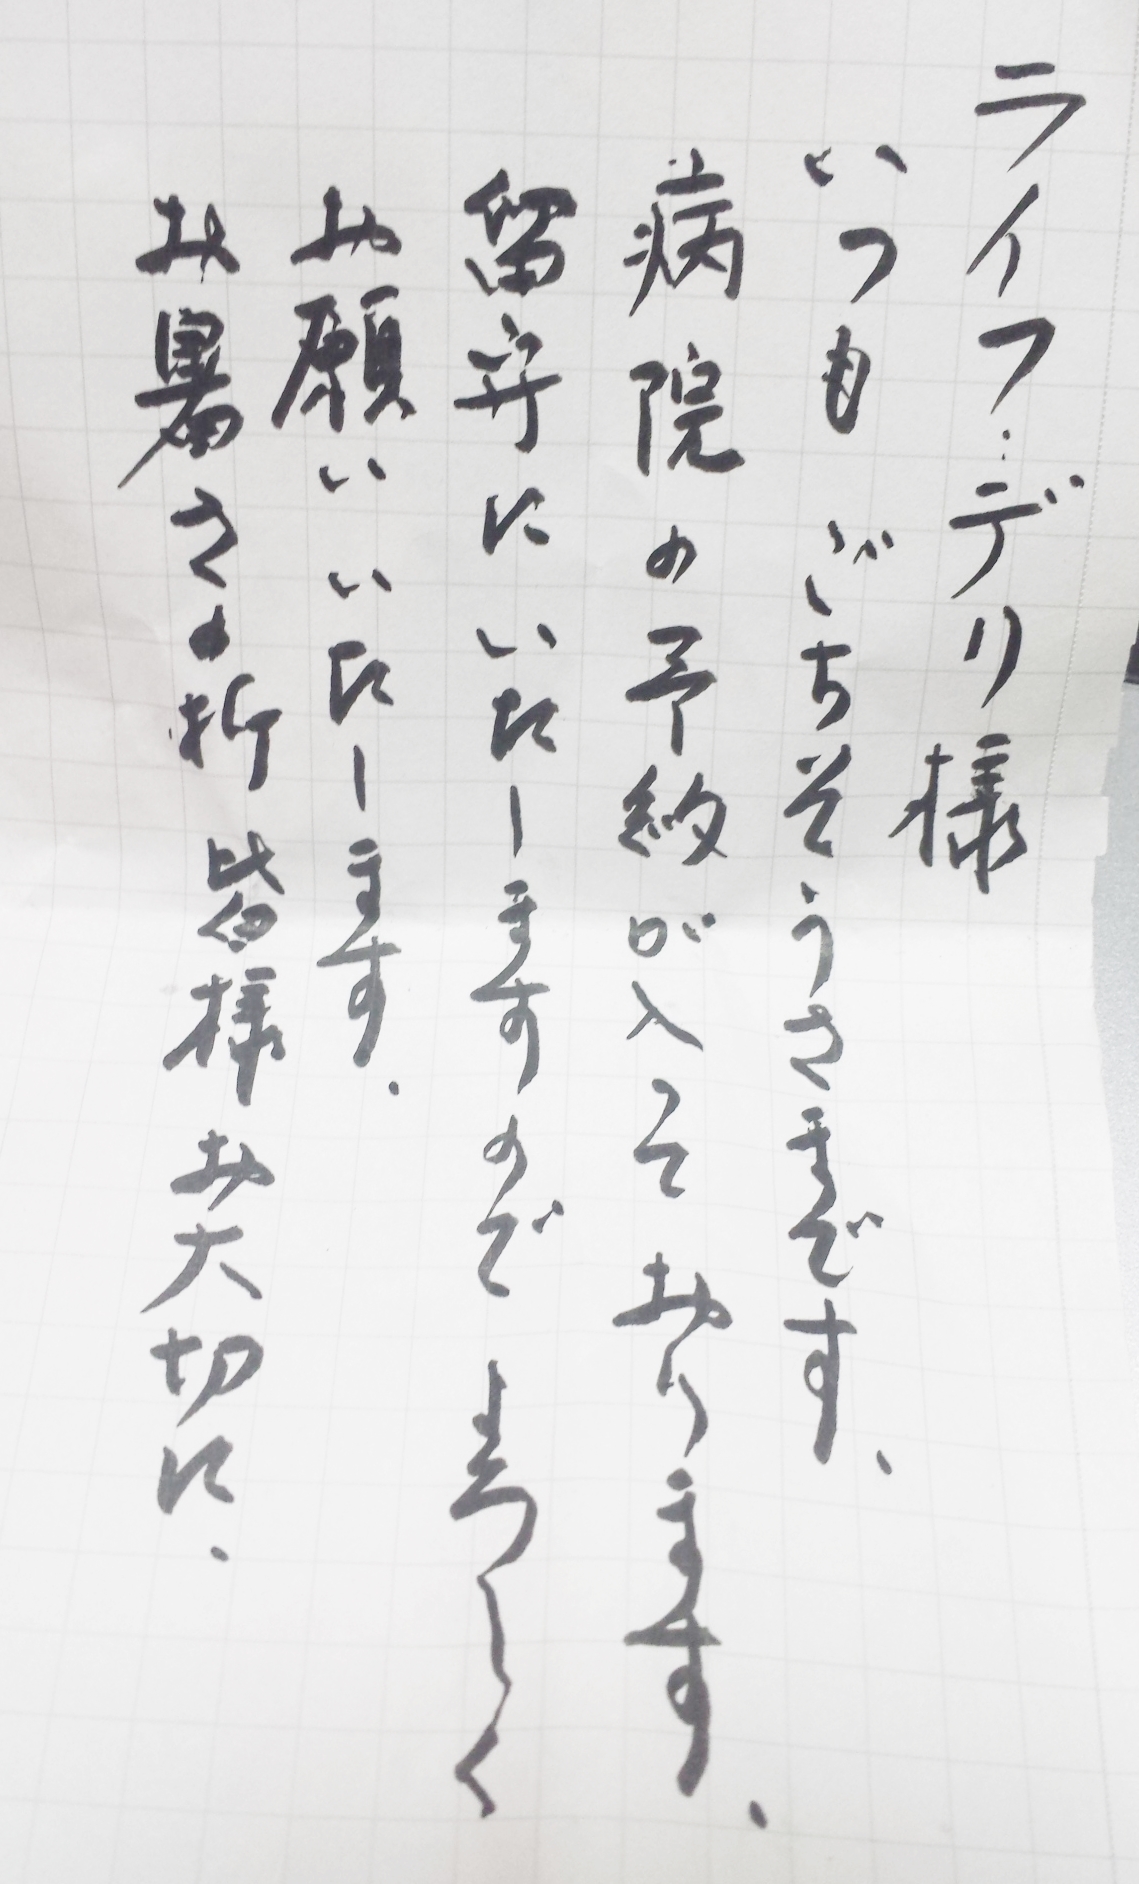 ライフ・デリ様
いつもごちそうさまです、
病院の予約が入っております、
留守にいたしますのでよろしく
お願いいたします.
お暑さの折皆様お大切に.